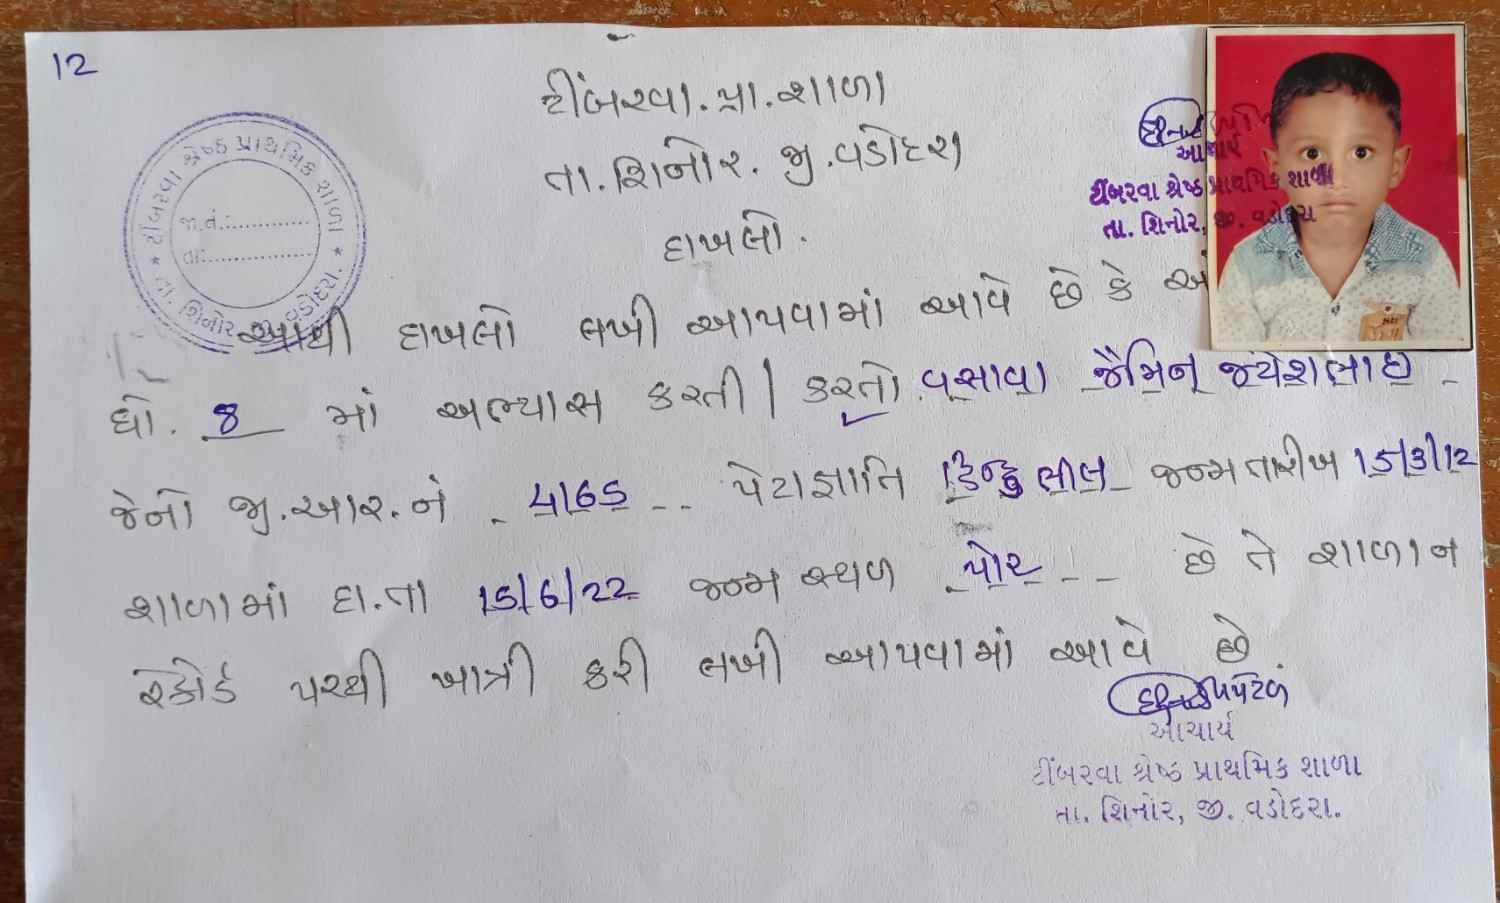 12
ટીંબરવા.પ્રા.શાળા
તા.શિનોર. જી.વડોદરા
દાખલો.
ટીંબરવા શ્રેષ્ઠ પ્રાથમિક શાળા
જા.નં.:
તા.:
તા. શિનોર વડોદરા.
આચાર્ય
ટીંબરવા શ્રેષ્ઠ પ્રાથમિક શાળા
તા. શિનોર, જી. વડોદરા
આથી દાખલો લખી આપવામાં આવે છે કે અ
ધો. 8 માં અભ્યાસ કરતી / કરતો વસાવા જૈમિન જયેશભાઇ
જેનો જી.આર.નં 4165 પેટાજ્ઞાતિ હિન્દુ ભીલ જન્મતારીખ 15/3/12
શાળામાં દા.તા 15/6/22 જન્મ સ્થળ પોર છે તે શાળાન
રેકોર્ડ પરથી ખાત્રી કરી લખી આપવામાં આવે છે.
આચાર્ય
ટીંબરવા શ્રેષ્ઠ પ્રાથમિક શાળા
તા. શિનોર, જી. વડોદરા.